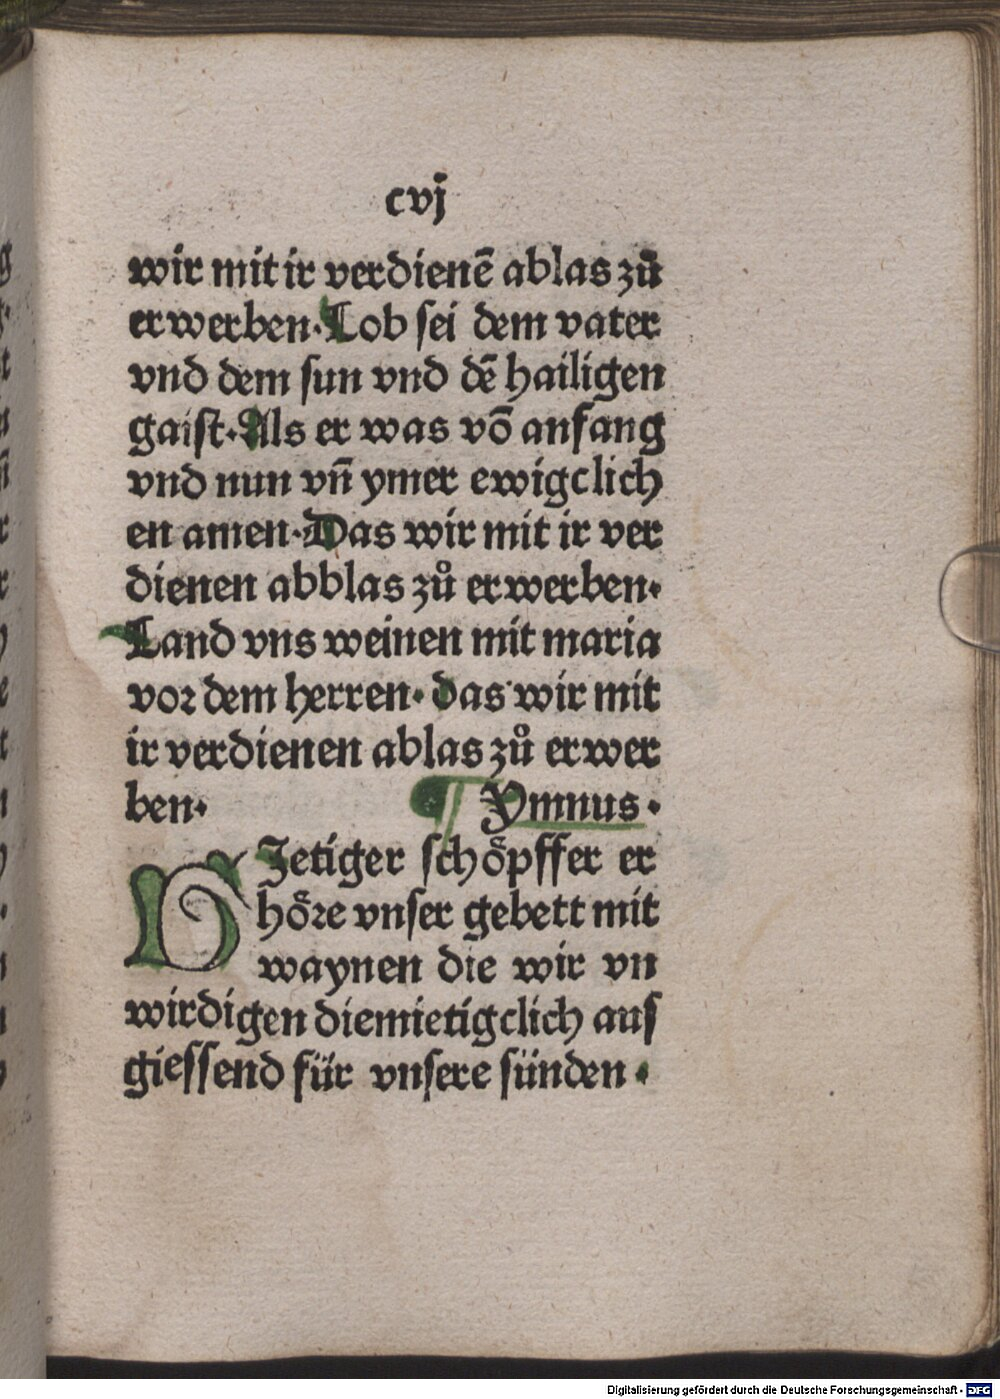 cvj
wir mit ir verdienē ablas zů
erwerben· Lob sei dem vater
vnd dem sun vnd dē hailigen
gaist· Als er was võ anfang
vnd nun vñ ymer ewigclich
en amen· Das wir mit ir ver
dienen abblas zů erwerben·
Land vns weinen mit maria
vor dem herren· das wir mit
ir verdienen ablas zů erwer
ben· ¶ Ymnus·
GJetiger schöpffer er
höre vnser gebett mit
waynen die wir vn
wirdigen diemietigclich aus
giessend für vnsere sünden·
Digitalisierung gefördert durch die Deutsche Forschungsgemeinschaft - DFG